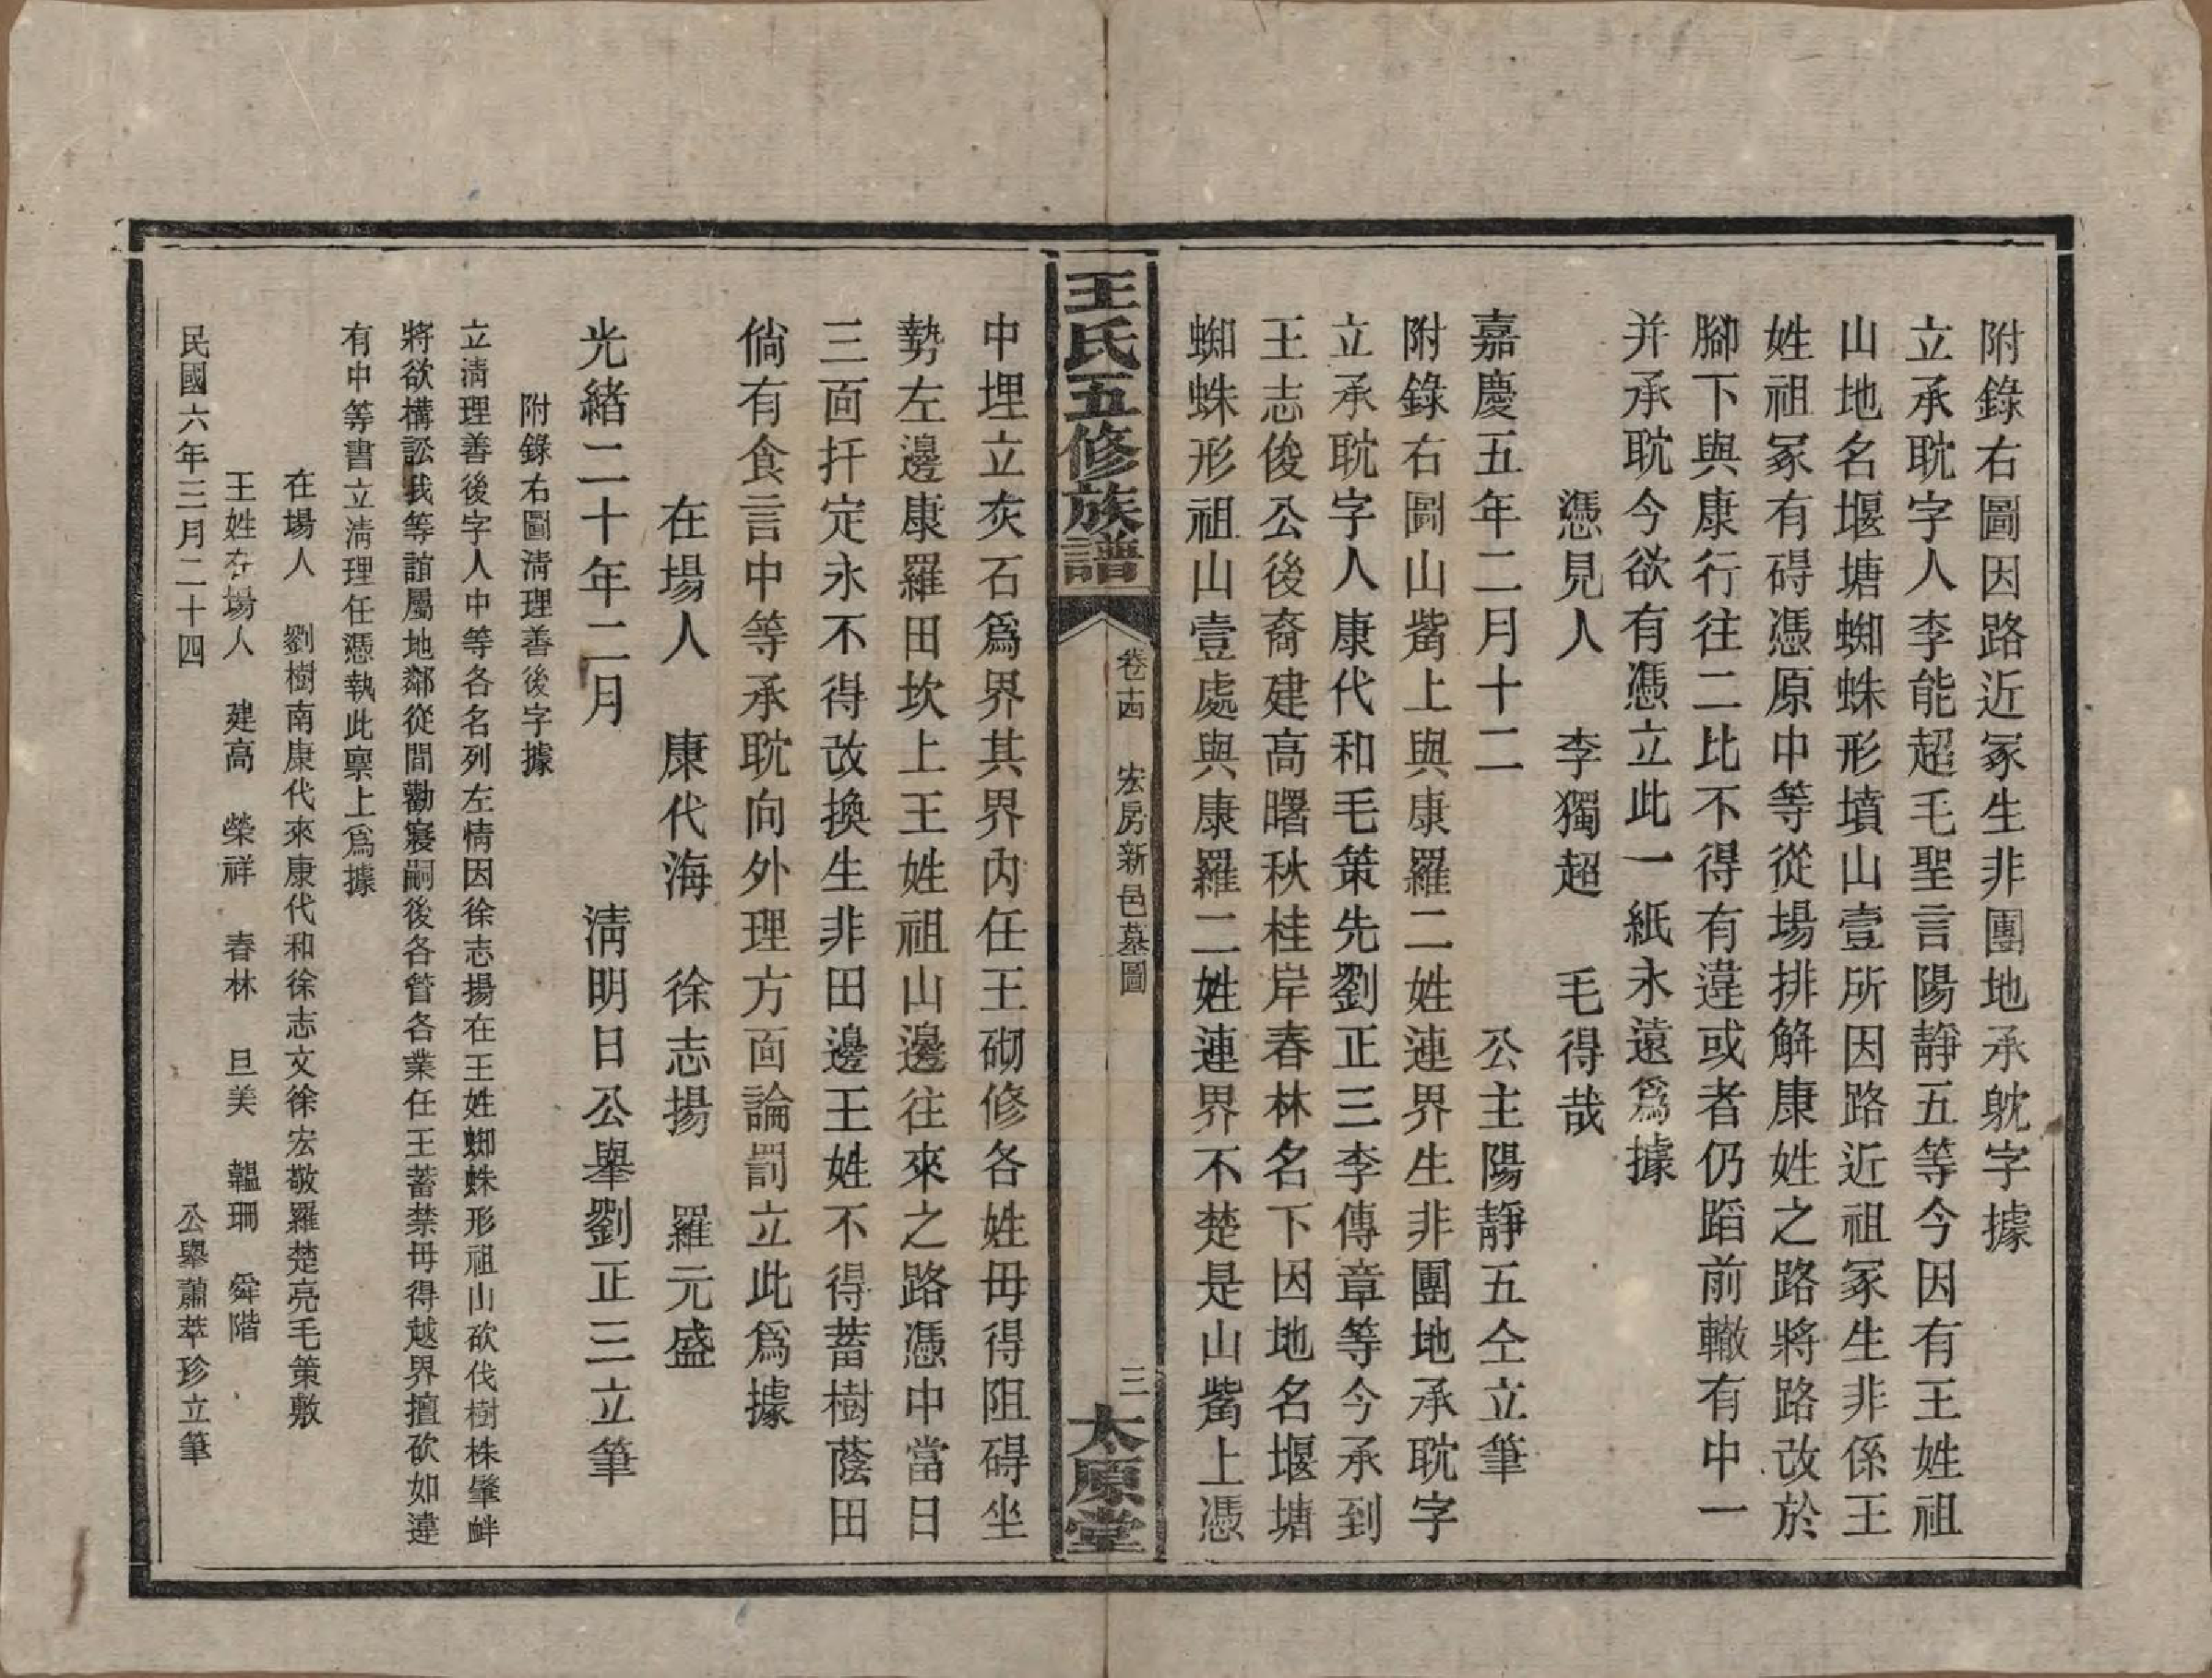 附錄右圖因路近冢生非團地承躭字據
立承耽字人李能超毛聖言陽靜五等今因有王姓祖
山地名堰塘蜘蛛形墳山壹所因路近祖冢生非係王
姓祖冢有碍憑原中等從場排解康姓之路將路改於
腳下與康行往二比不得有違或者仍蹈前轍有中一
并承耽今欲有憑立此一紙永遠爲據
憑見人　李獨超　毛得哉
嘉慶五年二月十二　公主陽靜五仝立筆
附錄右圖山觜上與康羅二姓連界生非團地承耽字
立承耽字人康代和毛策先劉正三李傳章等今承到
王志俊公後裔建高曙秋桂岸春林名下因地名堰塘
蜘蛛形祖山壹處與康羅二姓連界不楚是山觜上憑
王氏五修族譜
卷十四　宏房新邑墓圖
三
太原堂
中埋立灰石爲界其界內任王砌修各姓毋得阻碍坐
勢左邊康羅田坎上王姓祖山邊往來之路憑中當日
三面扦定永不得改換生非田邊王姓不得蓄樹蔭田
倘有食言中等承耽向外理方面論罰立此爲據
在場人　康代海　徐志揚　羅元盛
光緒二十年二月　清明日公舉劉正三立筆
附錄右圖清理善後字據
立清理善後字人中等各名列左情因徐志揚在王姓蜘蛛形祖山砍伐樹株肇衅
將欲構訟我等誼屬地鄰從間勸寢嗣後各管各業任王蓄禁毋得越界擅砍如違
有中等書立清理任憑執此稟上爲據
在場人　劉樹南康代來康代和徐志文徐宏敬羅楚亮毛策敷
王姓在場人　建高　榮祥　春林　旦美　韞珊　舜階
民國六年三月二十四　公舉蕭萃珍立筆